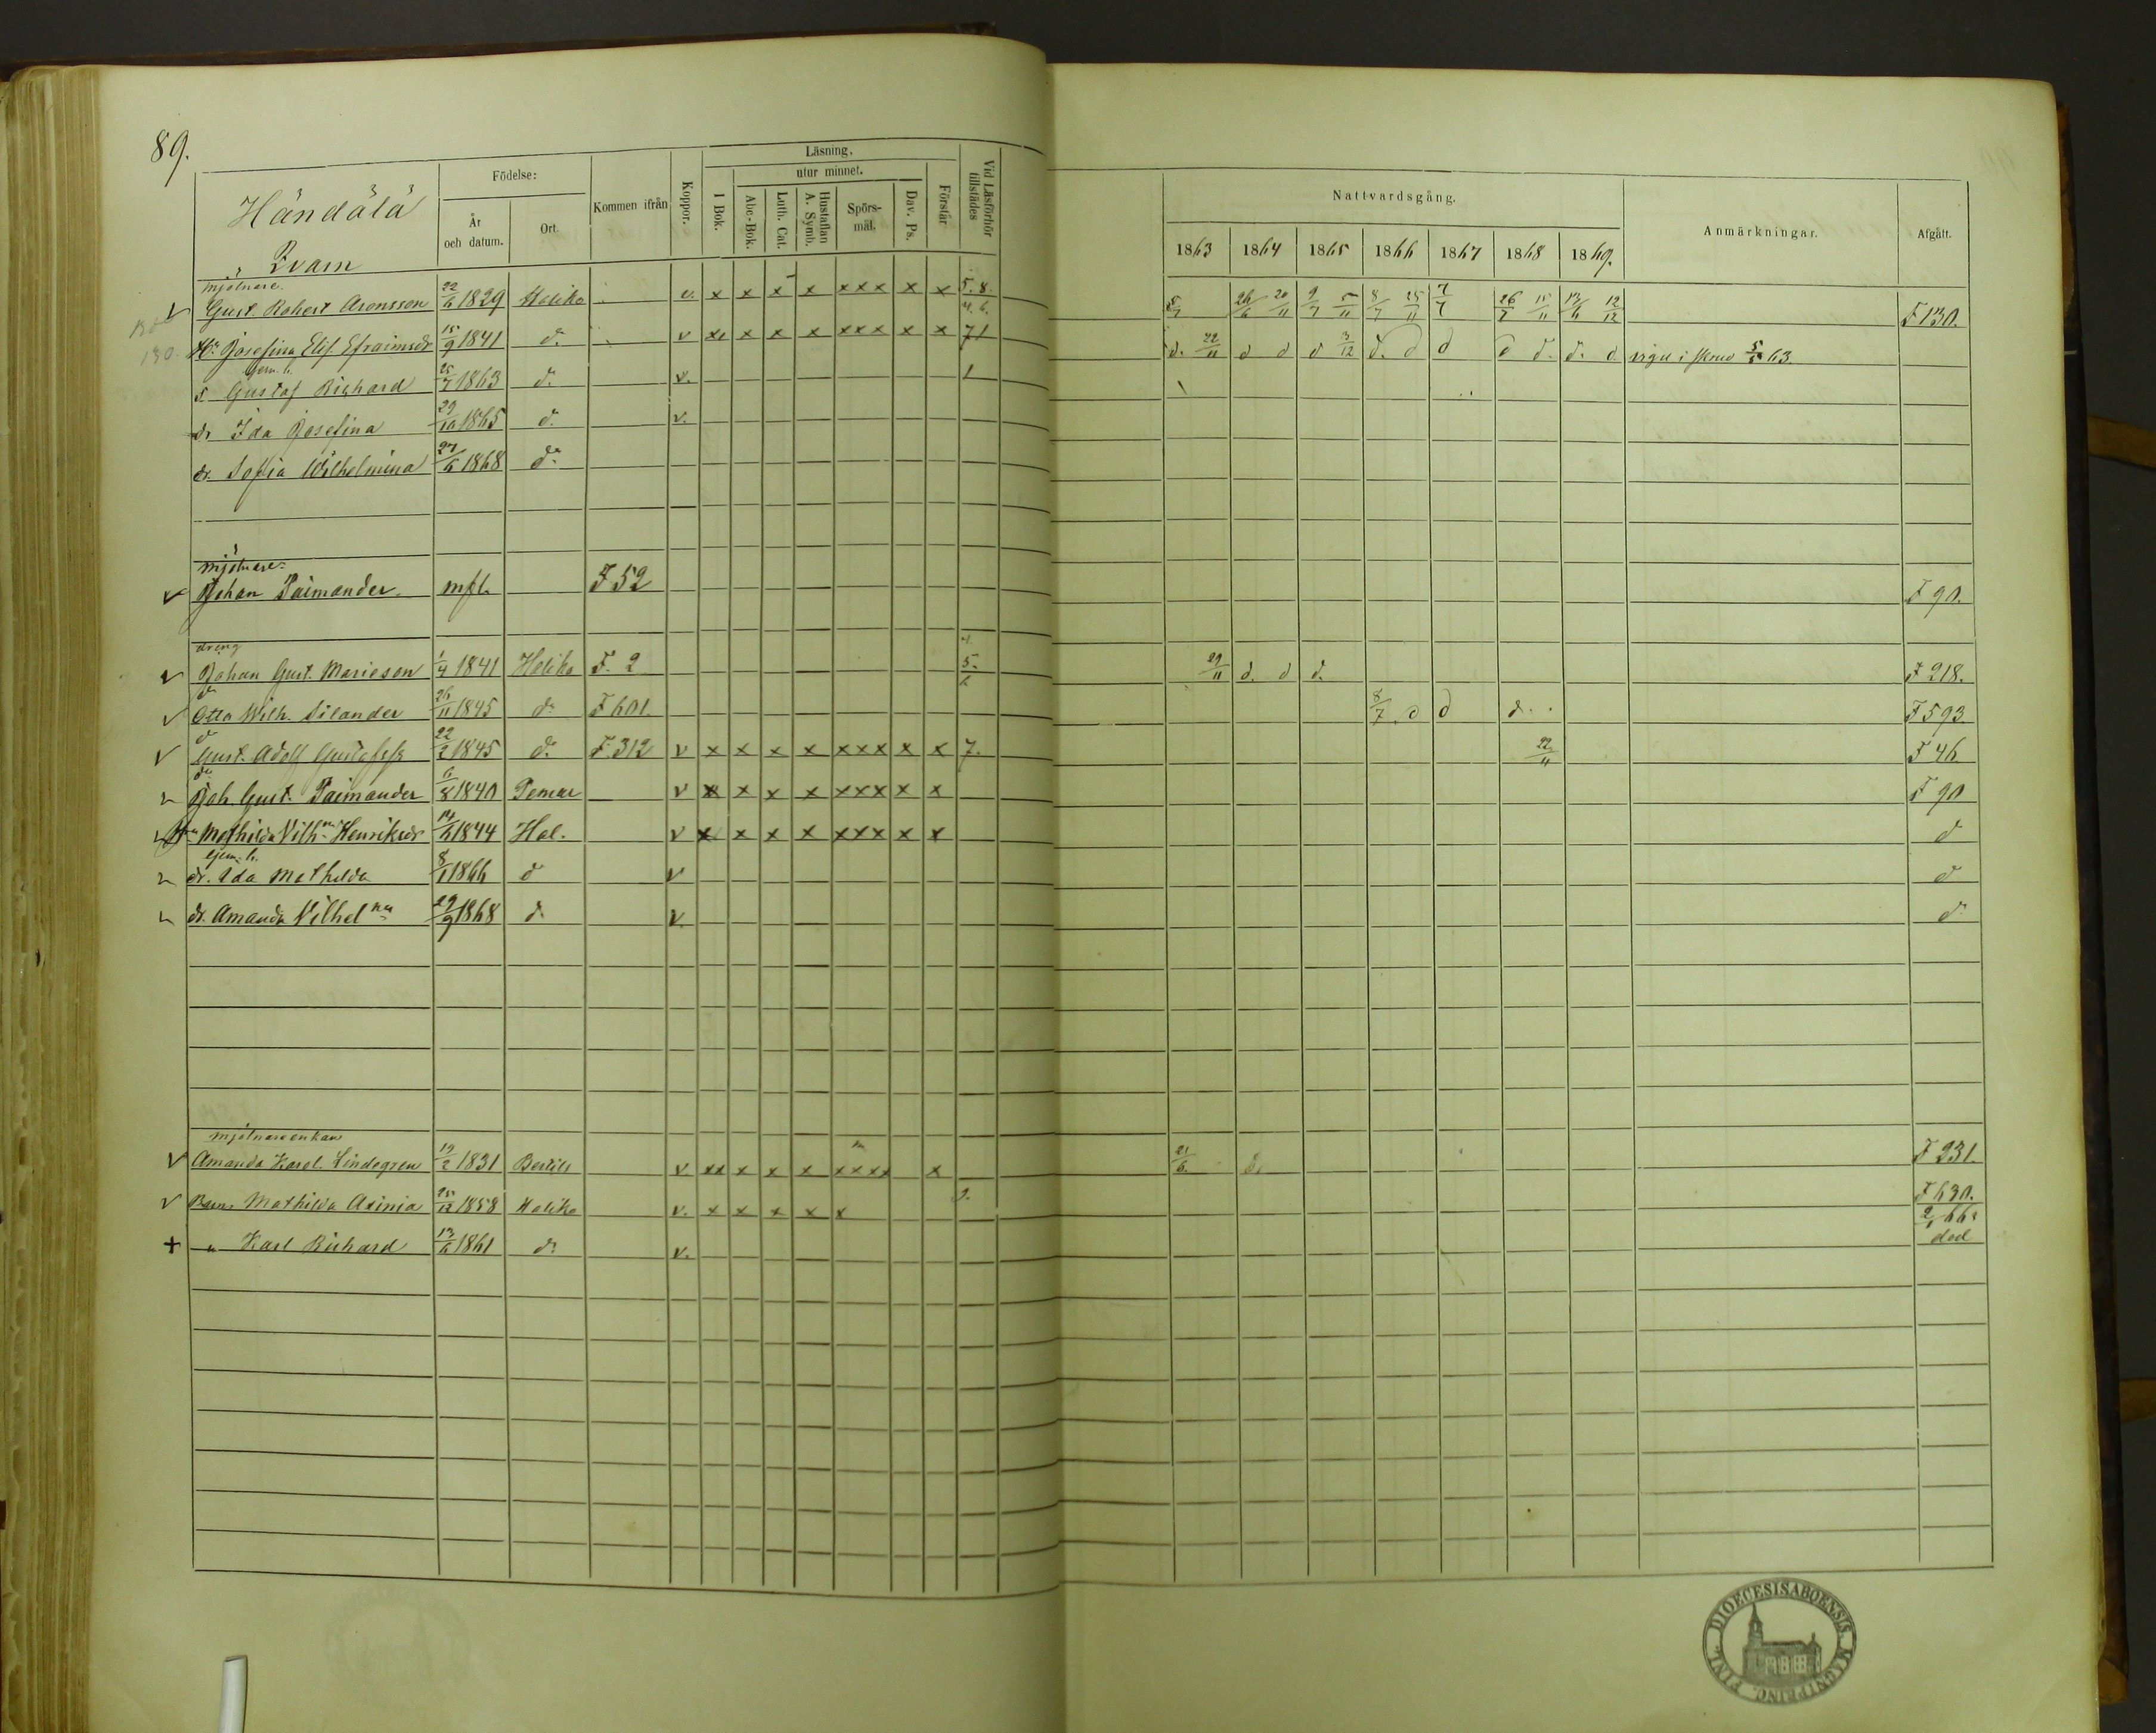 89.
Händälä
Qvarn
Födelse:
År och datum.
Ort.
Kommen ifrån
Koppor.
Läsning.
I Bok.
utur minnet.
Abc-Bok.
Luth. Cat.
Hustaflan A. Symb.
Spörs-mål.
Dav. Ps.
Förstår
Vid Läsförhör tillstädes
Nattvardsgång.
1863 1864 1865 1866 1867 1868 1869.
Anmärkningar.
Afgått.
mjölnare.
Gust. Robert Aronsson 22/6 1829 Haliko v. x x x x xxx x x 5. 8. 5/7 26/6 20/11 9/7 5/11 8/7 25/11 7/7 26/7 15/11 13/6 12/12 F 130.
130. Hu Josefina Elis. Efraimsdr 15/9 1841 do v x x x x xxx x x 71 d. 22/11 d d d 3/12 d. d d d d. d. d vigd 5/5 63.
s. Gustaf Richard 25/7 1863 do v. 1
dr Ida Josefina 29/10 1865 do v.
dr. Sofia Wilhelmina 27/6 1868 do
mjölnare.
Johan Paimander mfl. F 52 F 90.
dräng
Johan Gust. Marieson 1/4 1841 Haliko F. 2 5. 29/11 d. d d. F 218.
do
Otto Wilh. Silander 26/11 1845 do F 601. 8/7 d d d. F 593
do
Gust. Adolf Gustafss 22/2 1845 do F. 312 v x x x x xxx x x 7. 22/11 F 46
do
Joh. Gust. Paimander 6/8 1840 Pemar v x x x x xxx x x F 90
Hu Mathilda Vilhna Henriksdr 14/6 1844 Hal. v x x x x xxx x x d
dr. Ida Mathilda 8/1 1866 d v d
dr. Amanda Vilhelna 29/9 1868 d. v. do
mjölnareenkan
Amanda Karol. Lindegren 19/2 1831 Bertils v xx x x x xxxx x 21/6. d. F 231.
Barn. Mathilda Axinia 25/12 1858 Haliko v. x x x x x F 630.
+ " Karl Richard 13/6 1861 do v. död
DIOECESIS ABOENSIS. MAGNI PRINC. FINL.